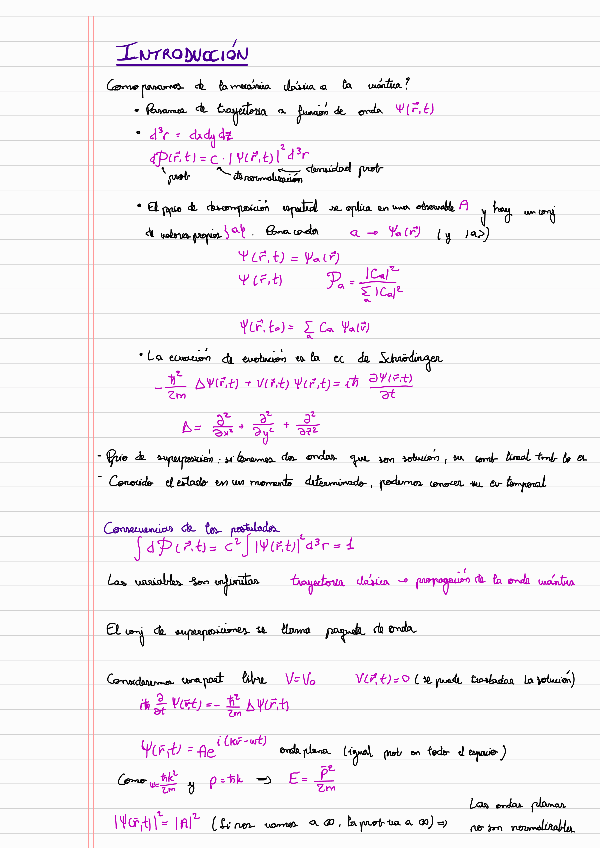 INTRODUCCIÓN
Como pasamos de la mecánica clásica a la cuántica?
• Pasamos de trayectoria a función de onda Ψ(r⃗,t)
• d³r = dxdydz
dP(r⃗,t) = C · |Ψ(r⃗,t)|² d³r
prob cte normalización densidad prob
• El ppio de descomposición espectral se aplica en una observable A y hay un conj
de valores propios {a}. Para cada a → Ψa(r⃗) (y |a>)
Ψ(r⃗,t) = Ψa(r⃗)
Ψ(r⃗,t) Pa = |Ca|² / Σa |Ca|²
Ψ(r⃗,t₀) = Σa Ca Ψa(r⃗)
• La ecuación de evolución es la ec de Schrödinger
- ħ²/2m ΔΨ(r⃗,t) + V(r⃗,t) Ψ(r⃗,t) = iħ ∂Ψ(r⃗,t)/∂t
Δ = ∂²/∂x² + ∂²/∂y² + ∂²/∂z²
- Ppio de superposición: si tenemos dos ondas que son solución, su comb lineal tmb lo es
- Conocido el estado en un momento determinado, podemos conocer su ev temporal
Consecuencias de los postulados
∫dP(r⃗,t) = C² ∫|Ψ(r⃗,t)|² d³r = 1
Las variables son infinitas trayectoria clásica → propagación de la onda cuántica
El conj de superposiciones se llama paquete de onda
Consideremos una part libre V=V₀ V(r⃗,t)=0 (se puede trasladar la solución)
iħ ∂/∂t Ψ(r⃗,t) = - ħ²/2m ΔΨ(r⃗,t)
Ψ(r⃗,t) = Ae^i(k⃗r⃗-ωt) onda plana (igual prob en todo el espacio)
Como ω=ħk²/2m y p=ħk ⇒ E = p⃗²/2m
|Ψ(r⃗,t)|² = |A|² (Si nos vamos a ∞, la prob va a ∞) ⇒ Las ondas planas
no son normalizables